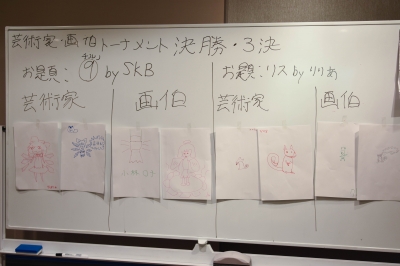 芸術家・画伯トーナメント決勝・3決
お題: ⑨ by SKB
お題:リス by りりぁ
芸術家
画伯
芸術家
画伯